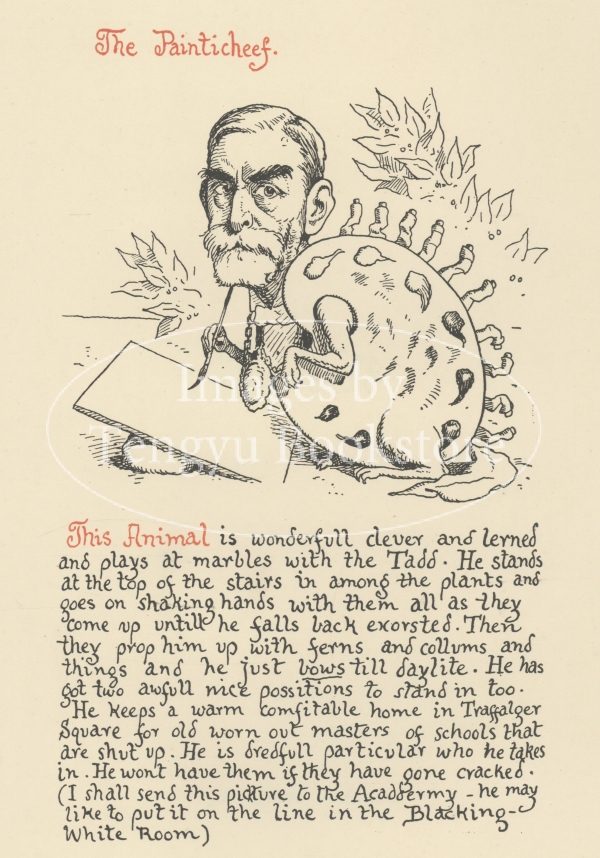 The Painticheef.
Images by
Tengyu Bookstore
This Animal is wonderfull clever and lerned
and plays at marbles with the Tadd. He stands
at the top of the stairs in among the plants and
goes on shaking hands with them all as they
come up untill he falls back exorsted. Then
they prop him up with ferns and collums and
things and he just bows till daylite. He has
got two awfull nice possitions to stand in too.
He keeps a warm comfitable home in Traffalger
Square for old worn out masters of schools that
are shut up. He is dredfull particular who he takes
in. He wont have them if they have gone cracked.
(I shall send this picture to the Acaddermy - he may
like to put it on the line in the Blacking-
White Room)